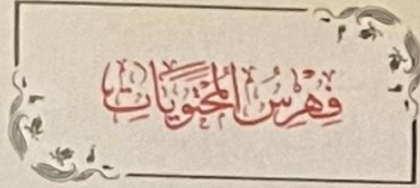 فِهْرِسُ المُحْتَوَيَاتِ